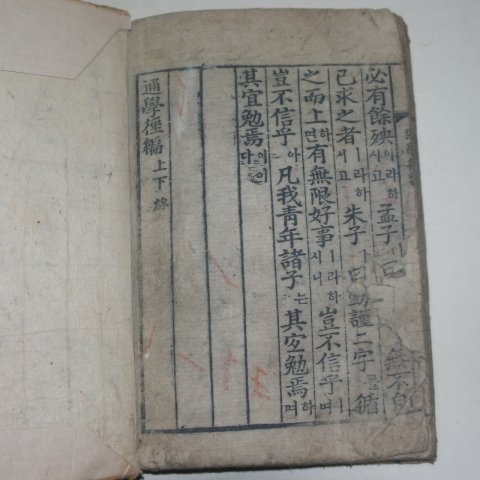 必有餘殃이라하시고孟子
己求之者ㅣ라하시고朱子ㅣ曰勤謹二字를循
之而上하면有無限好事ㅣ라하시니豈不信乎며
豈不信乎아凡我靑年諸子는其宜勉焉하며
其宜勉焉이어다
通學徑編上下終